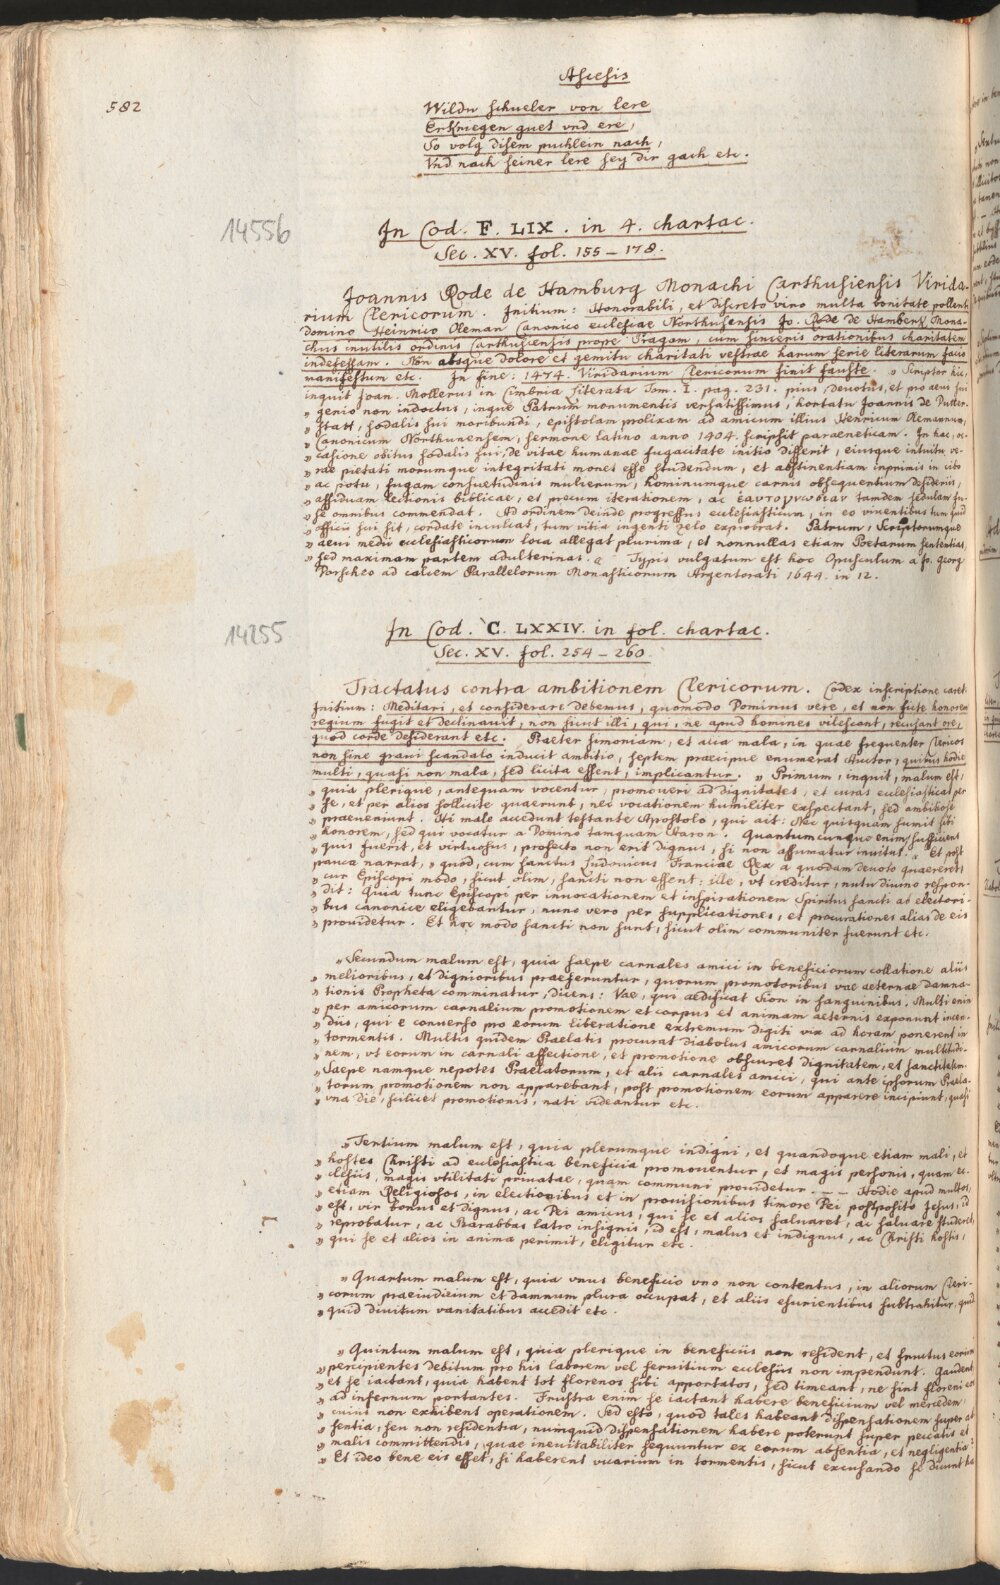 Ascesis
582
Wildu schueler von lere
Erkriegen guet vnd ere,
So volg disem puchlein nach,
Vnd nach seiner lere sey dir gach etc.
14556
In Cod. F. LIX. in 4. chartac.
Sec. XV. fol. 155 – 178.
Joannis Rode de Hamburg Monachi Carthusiensis Virida-
rium Clericorum. Initium: Honorabili, et discreto viro multa bonitate pollenti
Domino Heinrico Aleman Canonico ecclesiae Northusensis Jo. Rode de Hamberk Mona-
chus inutilis ordinis Carthusiensis prope Pragam, cum sinceris orationibus charitatem
indefessam. Non absque dolore et gemitu charitati vestrae harum serie literarum facio
manifestum etc. In fine: 1474. Viridarium Clericorum finit fauste. „ Scriptor hic,
inquit Joan. Mollerus in Cimbria Literata Tom. I. pag. 231. pius, devotus, et pro aeui sui
„ genio non indoctus, inque Patrum monumentis versatissimus, hortatu Joannis de Putter-
„ statt, sodalis sui moribundi, epistolam prolixam ad amicum illius Henricum Alemannum,
„ Canonicum Northunensem, sermone latino anno 1404. scripsit paraeneticam. In hac, oc-
„ casione obitus sodalis sui, de vitae humanae fugacitate initio disserit, eiusque intuitu, ve-
„ rae pietati morumque integritati monet esse studendum, et abstinentiam inprimis in cibo
„ ac potu, fugam consuetudinis mulierum, hominumque carnis obsequentium desideriis,
„ assiduam lectionis biblicae, et precum iterationem, ac tandem sedulam in
„ se omnibus commendat. Ad ordinem deinde progressus ecclesiasticum, in eo viventibus tum quid
„ officii sui sit, cordate inculcat, tum vitia ingenti zelo exprobrat. Patrum, Scriptorumque
„ aeui medii ecclesiasticorum loca allegat plurima, et nonnullas etiam Poetarum sententias,
„ sed maximam partem adulterinas. „ Typis vulgatum est hoc Opusculum a Jo. Georg
Dorscheo ad calcem Parallelorum Monasticorum Argentorati 1644. in 12.
14255
In Cod. C. LXXIV. in fol. chartac.
Sec. XV. fol. 254 – 260.
Tractatus contra ambitionem Clericorum. Codex inscriptione caret.
Initium: Meditari, et considerare debemus, quomodo Dominus vere, et non ficte honorem
regium fugit et declinauit, non sicut illi, qui, ne apud homines vilescant, recusant ore,
quod corde desiderant etc. Praeter simoniam, et alia mala, in quae frequenter Clericos
non sine graui scandalo inducit ambitio, septem praecipue enumerat Auctor, quibus hodie
multi, quasi non mala, sed licita essent, implicantur. „ Primum, inquit, malum est,
„ quia plerique, antequam vocentur, promoueri ad dignitates, et curas ecclesiasticas per
„ se, et per alios sollicite quaerunt, nec vocationem humiliter exspectant, sed ambitiose
„ praeueniunt. Hi male accedunt testante Apostolo, qui ait: Nec quisquam sumit sibi
„ honorem, sed qui vocatur a Domino tamquam Aaron. Quantumcunque enim sufficiens
„ quis fuerit, et virtuosus, profecto non erit dignus, si non assumatur inuitus. „ Et post
pauca narrat, „ quod, cum sanctus Ludouicus Franciae Rex a quodam deuoto quaereret,
„ cur Episcopi modo, sicut olim, sancti non essent: ille, vt creditur, nutu diuino respon-
„ dit: Quia tunc Episcopi per inuocationem et inspirationem Spiritus sancti ab electori-
„ bus canonice eligebantur, nunc vero per supplicationes, et procurationes alias de eis
„ prouidetur. Et hoc modo sancti non sunt, sicut olim communiter fuerunt etc.
„ Secundum malum est, quia saepe carnales amici in beneficiorum collatione aliis
„ melioribus, et dignioribus praeferuntur, quorum promotoribus vae aeternae damna-
„ tionis Propheta comminatur, dicens: Vae, qui aedificat Sion in sanguinibus. Multi enim
„ per amicorum carnalium promotionem et corpus et animam aeternis exponunt incen-
„ diis, qui e conuerso pro eorum liberatione extremum digiti vix ad horam ponerent in
„ tormentis. Multis quidem Praelatis procurat diabolus amicorum carnalium multitudi-
„ nem, vt eorum in carnali affectione, et promotione obscuret dignitatem, et sanctitatem.
„ Saepe namque nepotes Praelatorum, et alii carnales amici, qui ante ipsorum Praela-
„ torum promotionem non apparebant, post promotionem eorum apparere incipiunt, quasi
„ vna die, scilicet promotionis, nati videantur etc.
„ Tertium malum est, quia plerumque indigni, et quandoque etiam mali, et
„ hostes Christi ad ecclesiastica beneficia promouentur, et magis personis, quam ec-
„ clesiis, magis vtilitati priuatae, quam communi prouidetur. – – Hodie apud multos,
„ etiam Religiosos, in electionibus et in prouisionibus timore Dei postposito Jesus, id
„ est, vir bonus et dignus, ac Dei amicus, qui se et alios saluaret, ac saluare studeret,
„ reprobatur, ac Barabbas latro insignis, id est, malus et indignus, ac Christi hostis,
„ qui se et alios in anima perimit, eligitur etc.
„ Quartum malum est, quia vnus beneficio vno non contentus, in aliorum Cleri-
„ corum praeiudicium et damnum plura occupat, et aliis esurientibus subtrahitur, quod
„ quid diuitum vanitatibus accedit etc.
„ Quintum malum est, quia plerique in beneficiis non resident, et fructus eorum
„ percipientes debitum pro his laborem vel seruitium ecclesiis non impendunt. Gaudent
„ et se iactant, quia habent tot florenos sibi apportatos, sed timeant, ne sint floreni eos
„ ad infernum portantes. Frustra enim se iactant habere beneficium vel mercedem,
„ cuius non exhibent operationem. Sed esto, quod tales habeant dispensationem super ab-
„ sentia, seu non residentia, numquid dispensationem habere poterunt super peccatis et
„ malis committendis, quae ineuitabiliter sequuntur ex eorum absentia, et negligentia?
„ Et ideo bene eis esset, si haberent vicarium in tormentis, sicut excusando se dicunt